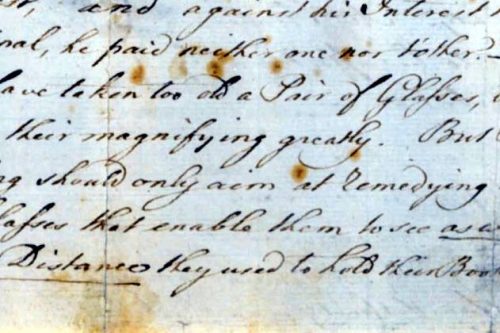 and against his Interest
he paid neither one nor t'other.
have taken too old a Pair of Glasses,
their magnifying greatly. But
should only aim at Remedying
Glasses that enable them to see as
Distance they used to hold their Boo